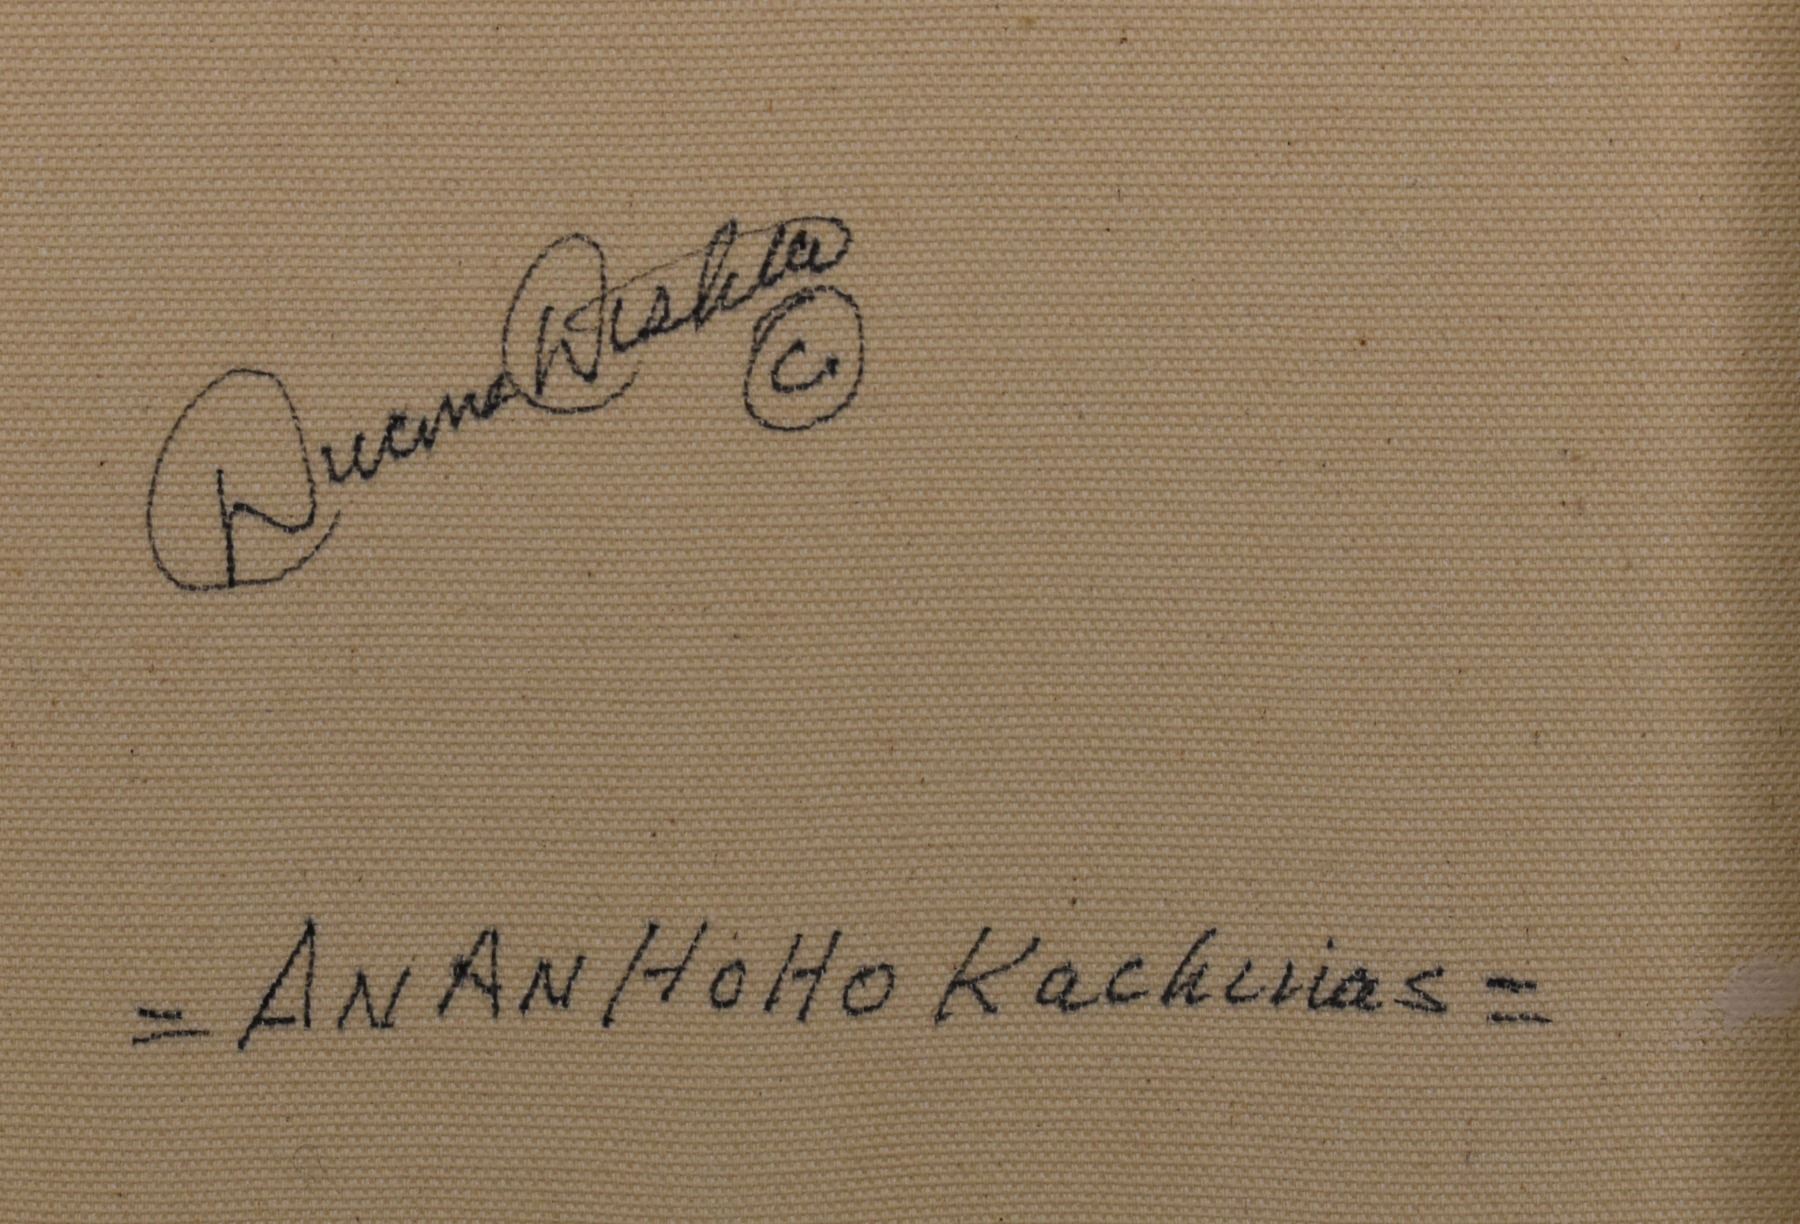 Duane Dishta
©
= ANANHOHO Kachinas =